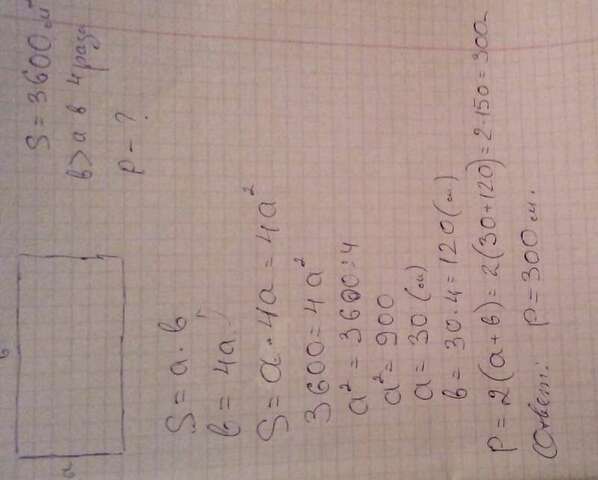 S = 3600 м²
b > a в 4 раза
P - ?
b
a
S = a · b
b = 4a
S = a · 4a = 4a²
3600 = 4a²
a² = 3600 : 4
a² = 900
a = 30 (м)
b = 30 · 4 = 120 (м)
P = 2(a + b) = 2(30 + 120) = 2 · 150 = 300
Ответ: P = 300 м.